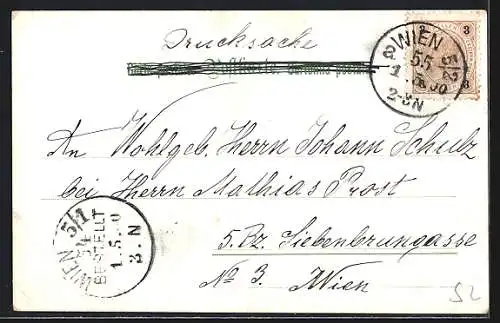 Drucksache
WIEN 5/2
55
8
1 5 00
2-3N
3 3
3
An Wohlgeb. Herrn Johann Schulz
bei Herrn Mathias Prost
5. Bz. Siebenbrunngasse
No 3. Wien
WIEN 5/1
BESTELLT
1.5.00
3.N
52